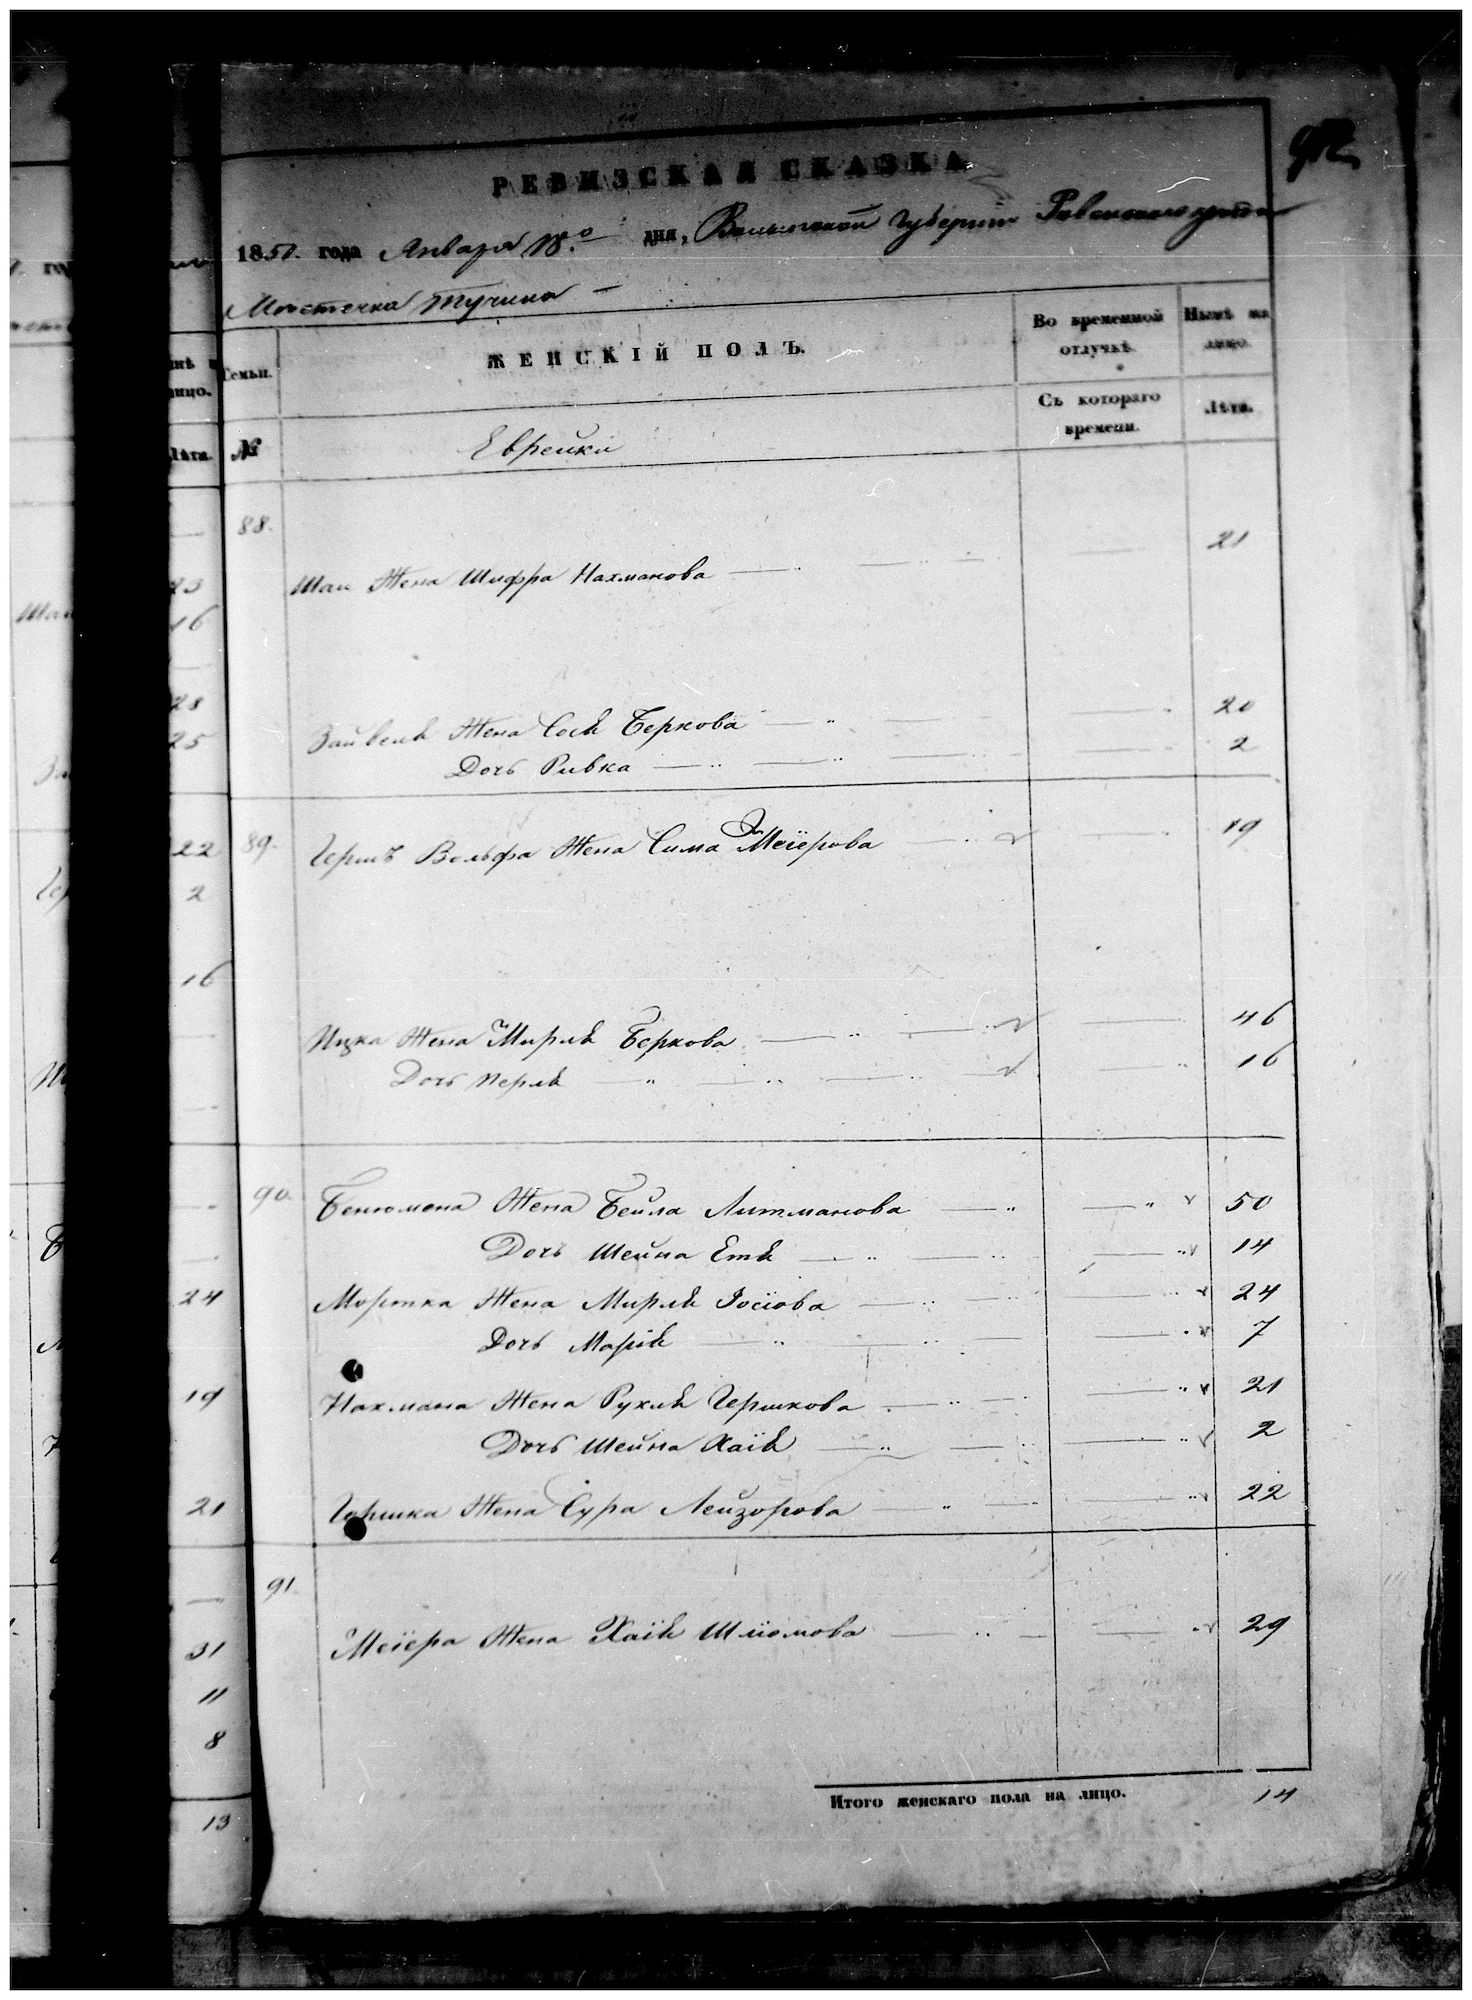 РЕВИЗСКАЯ СКАЗКА
1851. года Января 18.º дня, Волынской Губернии Ровенского уезда
Мѣстечка Тучина
Семьи.
ЖЕНСКІЙ ПОЛЪ.
Во временной отлучкѣ.
Нынѣ на лицо.
Съ котораго времени.
Лѣта.
№
Еврейки
88.
Шаи Жена Шифра Нахманова 21
Зайвеля Жена Сося Беркова 20
Дочь Ривка 2
89. Герша Вольфа Жена Сима Меіерова 19
Ицка Жена Мирля Беркова 46
Дочь Перля 16
90. Бенюмена Жена Бейла Литманова 50
Дочь Шейна Етя 14
Мортка Жена Мирля Іосіова 24
Дочь Марія 7
Нахмана Жена Рухля Гершкова 21
Дочь Шейна Хаія 2
Гершка Жена Сура Лейзорова 22
91.
Меіера Жена Хаія Шліомова 29
Итого женскаго пола на лицо. 14
лицо.
Лѣта.
23
16
28
25
22
2
16
24
19
21
31
11
8
13